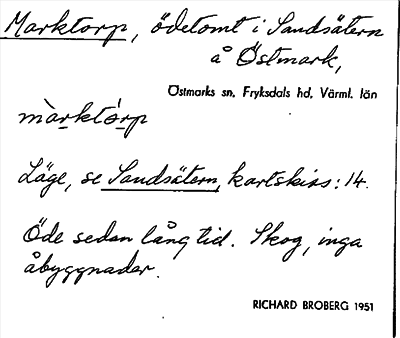 Marktorp, ödetomt i Sandsätern
å Östmark,
Östmarks sn, Fryksdals hd, Värml. län
màrktórp
Läge, se Sandsätern, kartskiss: 14.
Öde sedan lång tid. Skog, inga
åbyggnader.
RICHARD BROBERG 1951